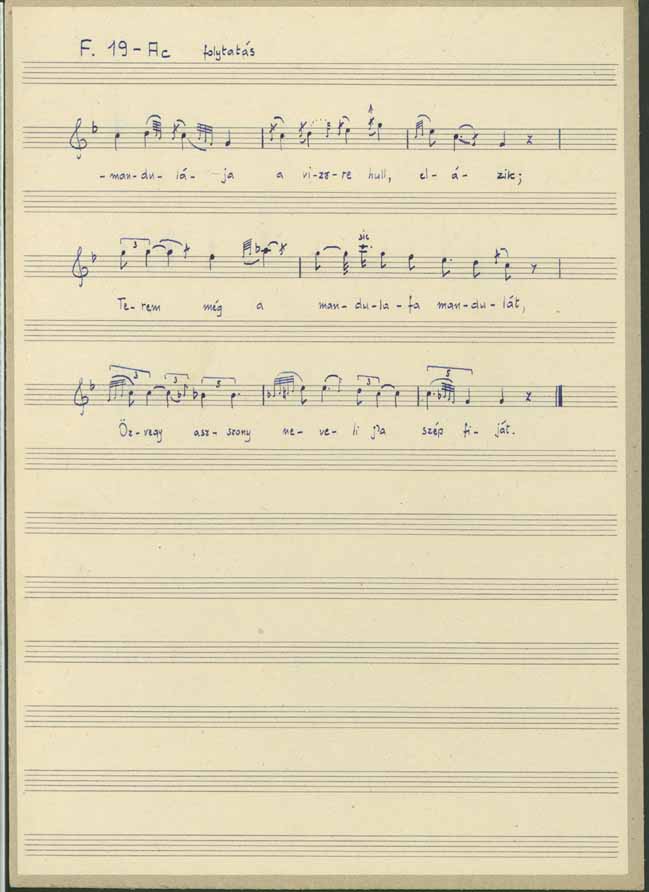 F. 19-Ac folytatás
-man-du-lá-ja a vi-zs-re hull, el-á-zik;
3
sic
Te-rem még a man-du-la-fa man-du-lát,
3 3 5 3 5
Öz-vegy asz-szony ne-ve-li j'a szép fi-ját.